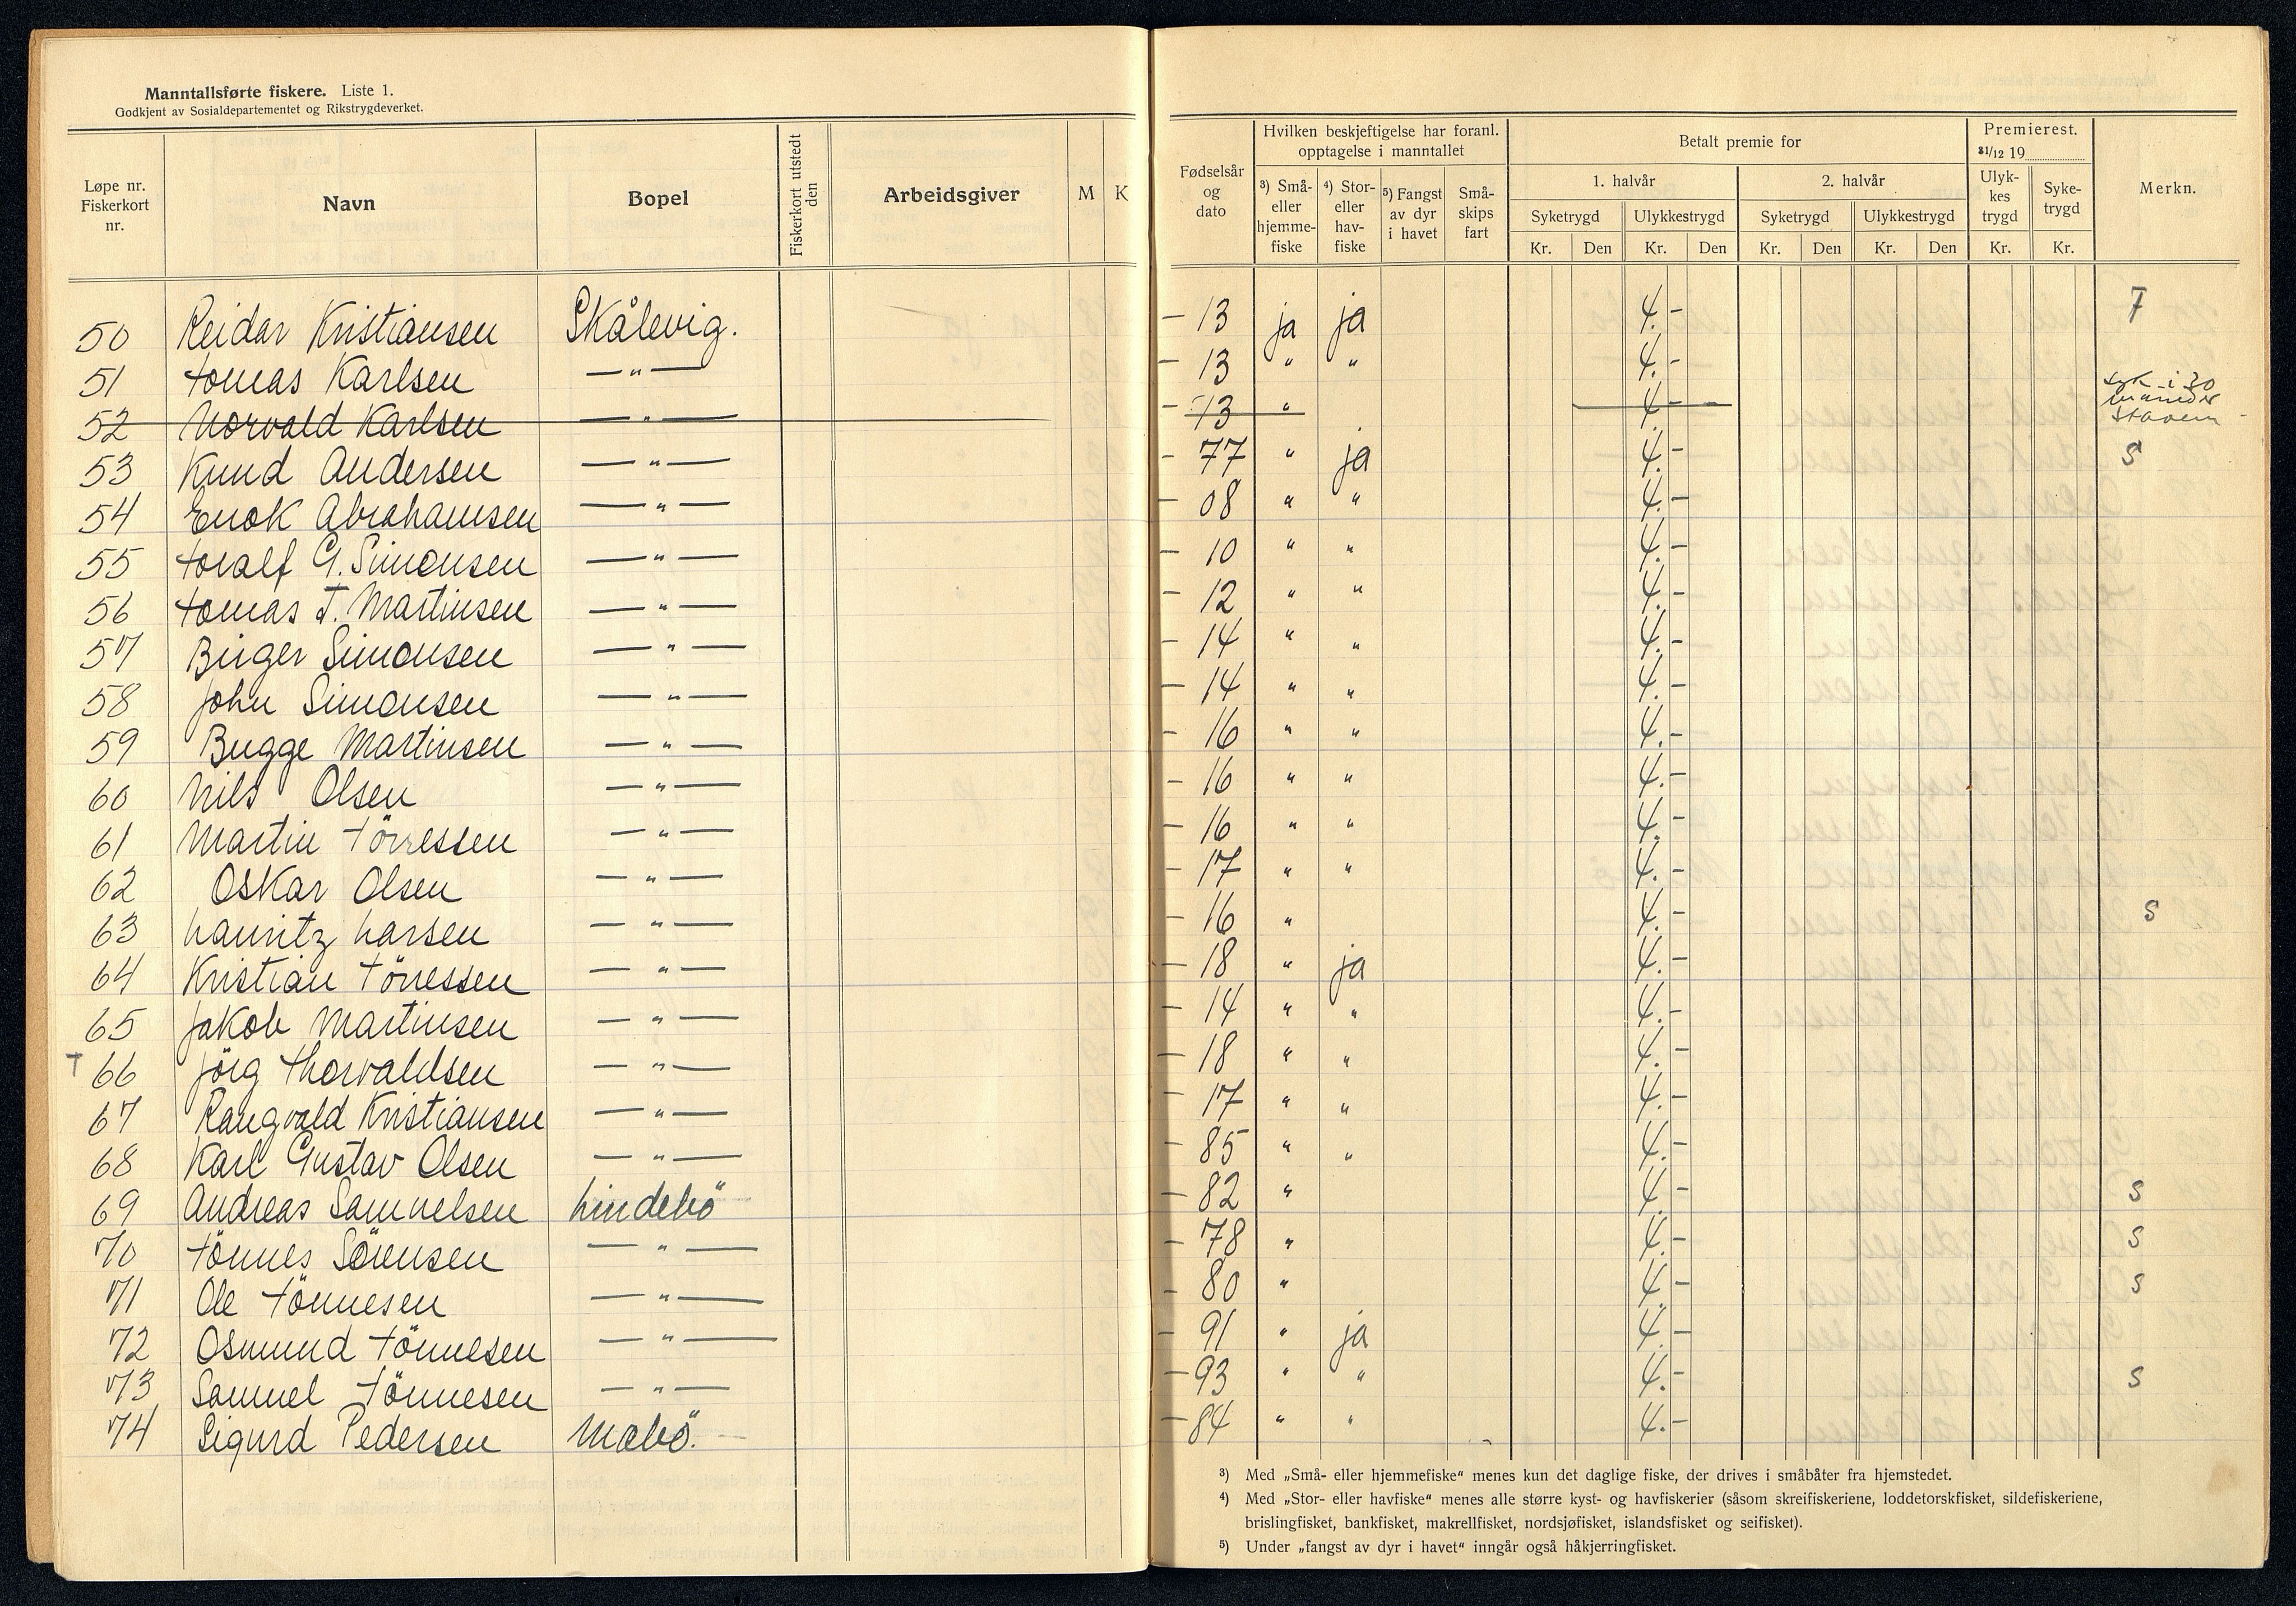 Manntallsførte fiskere. Liste 1.
Godkjent av Sosialdepartementet og Rikstrygdeverket.
Løpe nr. Fiskerkort nr. Navn Bopel Fiskerkort utstedt den Arbeidsgiver M K Fødselsår og dato
Hvilken beskjeftigelse har foranl. opptagelse i manntallet
³) Små- eller hjemme- fiske ⁴) Stor- eller hav- fiske ⁵) Fangst av dyr i havet Små- skips fart
Betalt premie for
1. halvår 2. halvår
Syketrygd Ulykkestrygd Syketrygd Ulykkestrygd
Kr. Den Kr. Den Kr. Den Kr. Den
Premierest. 31/12 19
Ulyk- kes trygd Syke- trygd
Kr. Kr.
Merkn.
50 Reidar Kristiansen Skålevig. – 13 ja ja 4.- F
51 Tomas Karlsen — " — – 13 " " 4.-
52 Norvald Karlsen — " — – 13 " 4.- i 30 måneder Stavern
53 Knud Andersen — " — – 77 " ja 4.- S
54 Enok Abrahamsen — " — – 08 " " 4.-
55 Toralf G. Simonsen — " — – 10 " " 4.-
56 Tomas T. Martinsen — " — – 12 " " 4.-
57 Birger Simonsen — " — – 14 " " 4.-
58 John Simonsen — " — – 14 " " 4.-
59 Bugge Martinsen — " — – 16 " " 4.-
60 Nils Olsen — " — – 16 " " 4.-
61 Martin Törressen — " — – 16 " " 4.-
62 Oskar Olsen — " — – 17 " " 4.-
63 Lauritz Larsen — " — – 16 " 4.- S
64 Kristian Törressen — " — – 18 " ja 4.-
65 Jakob Martinsen — " — – 14 " " 4.-
† 66 Jörg Thorvaldsen — " — – 18 " " 4.-
67 Rangvald Kristiansen — " — – 17 " " 4.-
68 Karl Gustav Olsen — " — – 85 " " 4.-
69 Andreas Samuelsen Lindebö – 82 " 4.- S
70 Tönnes Sörensen — " — – 78 " 4.- S
71 Ole Tönnesen — " — – 80 " 4.- S
72 Osmund Tönnesen — " — – 91 " ja 4.-
73 Samuel Tönnesen — " — – 93 " " 4.- S
74 Sigurd Pedersen Mæbö. – 84 " " 4.-
³) Med „Små- eller hjemmefiske“ menes kun det daglige fiske, der drives i småbåter fra hjemstedet.
⁴) Med „Stor- eller havfiske“ menes alle større kyst- og havfiskerier (såsom skreifiskeriene, loddetorskfisket, sildefiskeriene,
brislingfisket, bankfisket, makrellfisket, nordsjøfisket, islandsfisket og seifisket).
⁵) Under „fangst av dyr i havet“ inngår også håkjerringfisket.